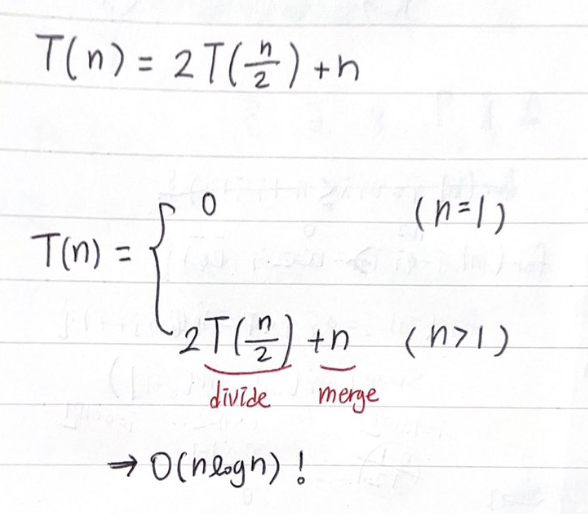 T(n) = 2T(n/2) + n
T(n) = { 0 (n=1)
2T(n/2) + n (n>1)
divide merge
⇒ O(nlogn) !